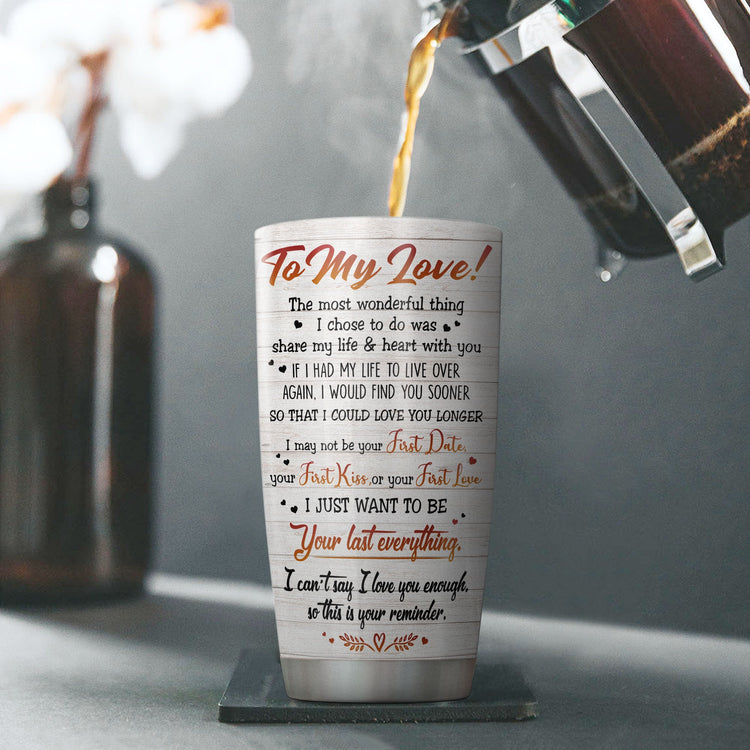 To My Love!
The most wonderful thing
I chose to do was
share my life & heart with you
IF I HAD MY LIFE TO LIVE OVER
AGAIN, I WOULD FIND YOU SOONER
SO THAT I COULD LOVE YOU LONGER
I may not be your First Date,
your First Kiss, or your First Love
I JUST WANT TO BE
Your last everything.
I can't say I love you enough,
so this is your reminder.